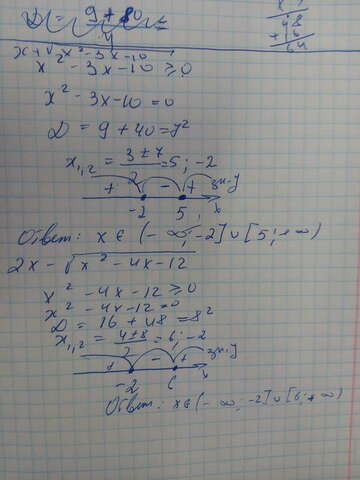 D = 9 + 40
48
+ 16
64
x + √x² - 3x - 10
x² - 3x - 10 ≥ 0
x² - 3x - 10 = 0
D = 9 + 40 = 7²
x₁,₂ = (3 ± 7)/2 = 5; -2
+ - + зн. y
-2 5 x
Ответ: x ∈ (-∞; -2] ∪ [5; +∞)
2x - √x² - 4x - 12
x² - 4x - 12 ≥ 0
x² - 4x - 12 = 0
D = 16 + 48 = 8²
x₁,₂ = (4 ± 8)/2 = 6; -2
+ - + зн. y
-2 6 x
Ответ: x ∈ (-∞; -2] ∪ [6; +∞)